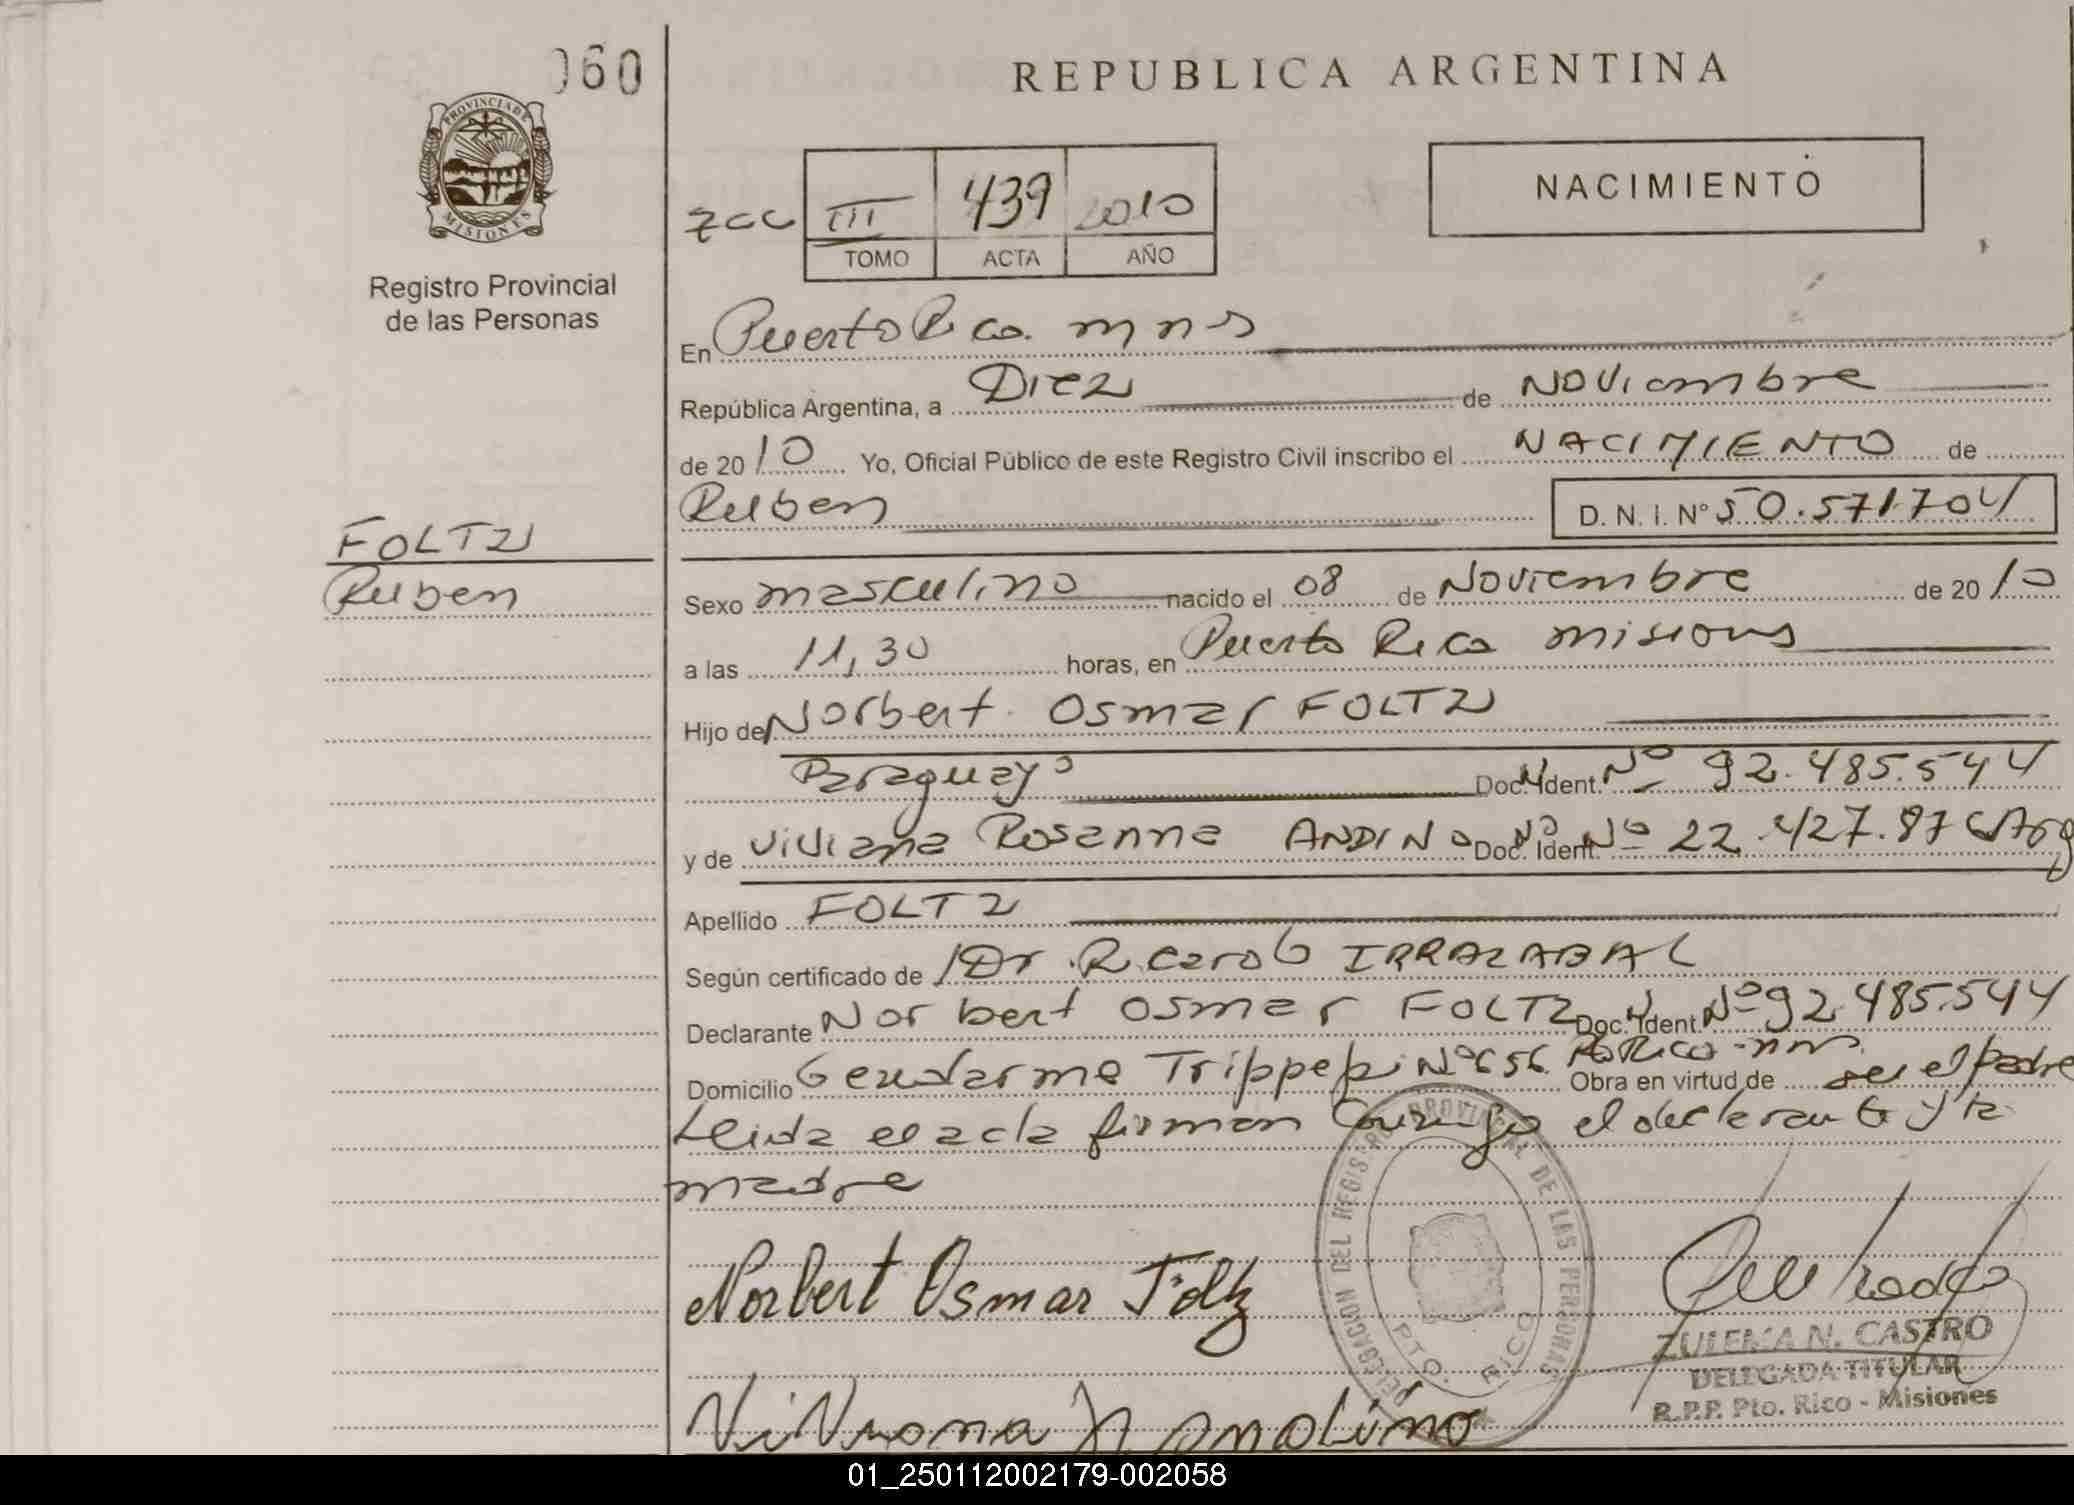 060
REPUBLICA ARGENTINA
PROVINCIA DE
MISIONES
Registro Provincial
de las Personas
zcc III 439 2010
TOMO ACTA AÑO
NACIMIENTO
En Puerto Rico. mns
República Argentina, a Diez de Noviembre
de 2010 Yo, Oficial Público de este Registro Civil inscribo el NACIMIENTO de
Ruben D. N. I. N° 50.571.704
FOLTZ
Ruben
Sexo masculino nacido el 08 de Noviembre de 2010
a las 11,30 horas, en Puerto Rico misiones
Hijo de Norbert Osmar FOLTZ
Paraguayo Doc. Ident. Nº 92.485.544
y de Viviana Rosanna ANDINO Doc. Ident. Nº 22.427.87 Arg
Apellido FOLTZ
Según certificado de Dr. Ricardo IRRAZABAL
Declarante Norbert Osmar FOLTZ Doc. Ident. Nº 92.485.544
Domicilio Gendarme Trippepi Nº 656 Pto Rico - mns. Obra en virtud de ser el padre
Leida el acta firman Conmigo el declarante y la
madre
Norbert Osmar Foltz
Viviana R Andino
DELEGACION DEL REGISTRO PROVINCIAL DE LAS PERSONAS
PTO. RICO
ZULEMA N. CASTRO
DELEGADA TITULAR
R.P.P. Pto. Rico - Misiones
01_250112002179-002058